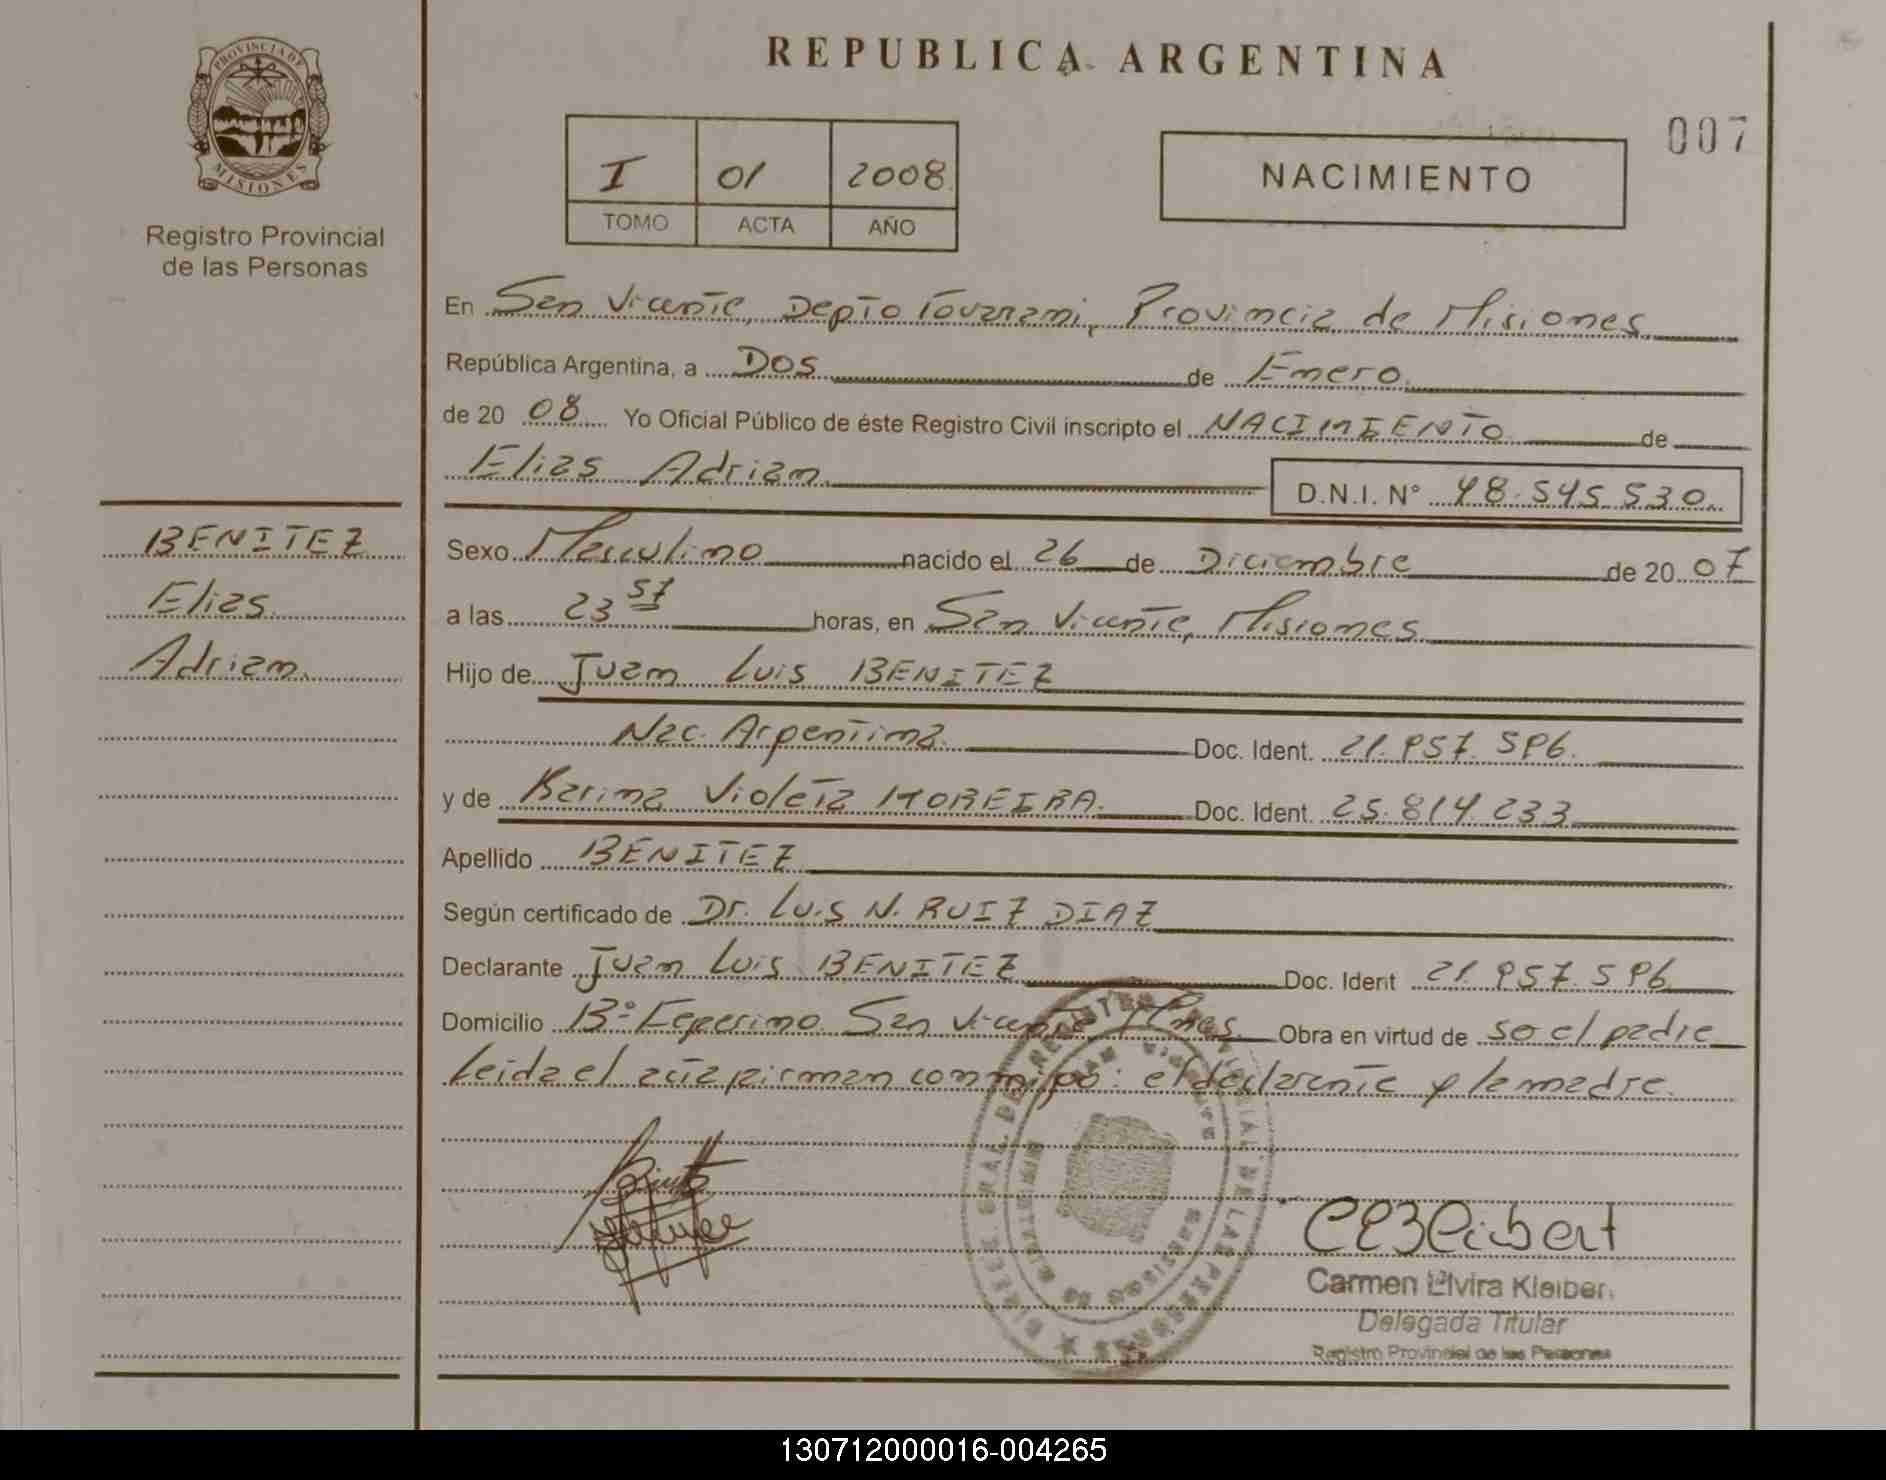 PROVINCIA DE
MISIONES
Registro Provincial
de las Personas
BENITEZ
Elias
Adrian.
REPUBLICA ARGENTINA
007
I 01 2008
TOMO ACTA AÑO
NACIMIENTO
En San Vicente, Depto Guarani, Provincia de Misiones
República Argentina, a Dos de Enero
de 20 08 Yo Oficial Público de éste Registro Civil inscripto el NACIMIENTO de
Elias Adrian. D.N.I. N° 48.545.530.
Sexo Masculino nacido el 26 de Diciembre de 20 07
a las 23 57 horas, en San Vicente, Misiones
Hijo de Juan Luis BENITEZ
Nac. Argentina. Doc. Ident. 21.957.596.
y de Karina Violeta MOREIRA. Doc. Ident. 25.814.233
Apellido BENITEZ
Según certificado de Dr. Luis N. RUIZ DIAZ
Declarante Juan Luis BENITEZ Doc. Ident 21.957.596
Domicilio B° San Vicente Mnes. Obra en virtud de so el padre
Leida el acta firman conmigo: el declarante y la madre.
Carmen Elvira Kleiber
Delegada Titular
Registro Provincial de las Personas
130712000016-004265